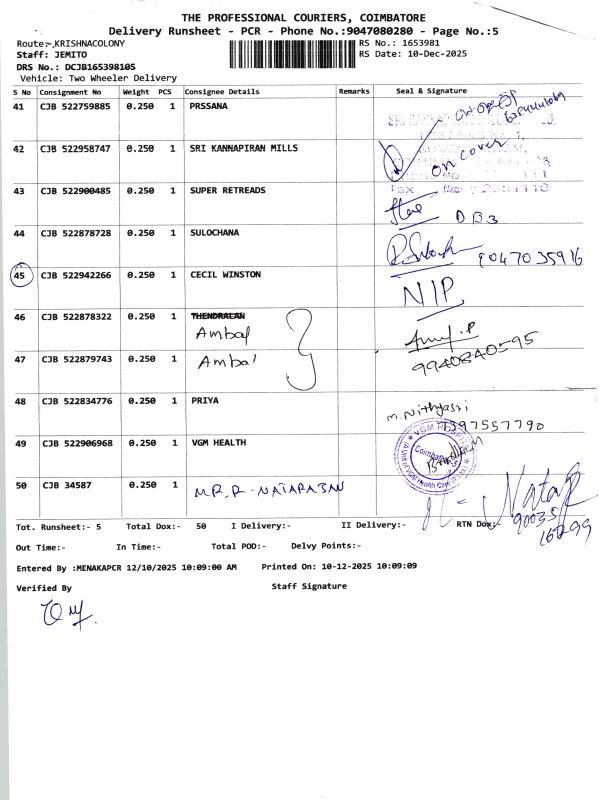 THE PROFESSIONAL COURIERS, COIMBATORE
Delivery Runsheet - PCR - Phone No.:9047080280 - Page No.:5
Route:-,KRISHNACOLONY
RS No.: 1653981
Staff: JEMITO
RS Date: 10-Dec-2025
DRS No.: DCJB165398105
Vehicle: Two Wheeler Delivery
S No Consignment No Weight PCS Consignee Details Remarks Seal & Signature
41 CJB 522759885 0.250 1 PRSSANA
42 CJB 522958747 0.250 1 SRI KANNAPIRAN MILLS on cover
43 CJB 522900485 0.250 1 SUPER RETREADS DB3
44 CJB 522878728 0.250 1 SULOCHANA 9047035916
45 CJB 522942266 0.250 1 CECIL WINSTON NIP
46 CJB 522878322 0.250 1 THENDRALAN
Ambal
47 CJB 522879743 0.250 1 Ambal 9940840595
48 CJB 522834776 0.250 1 PRIYA M. Nithyasri
7397557790
49 CJB 522906968 0.250 1 VGM HEALTH
50 CJB 34587 MR. R. NATARAJAN
Tot. Runsheet:- 5 Total Dox:- 50 I Delivery:- II Delivery:- RTN Dox:-
Out Time:- In Time:- Total POD:- Delvy Points:-
Entered By :MENAKAPCR 12/10/2025 10:09:00 AM Printed On: 10-12-2025 10:09:09
Verified By Staff Signature